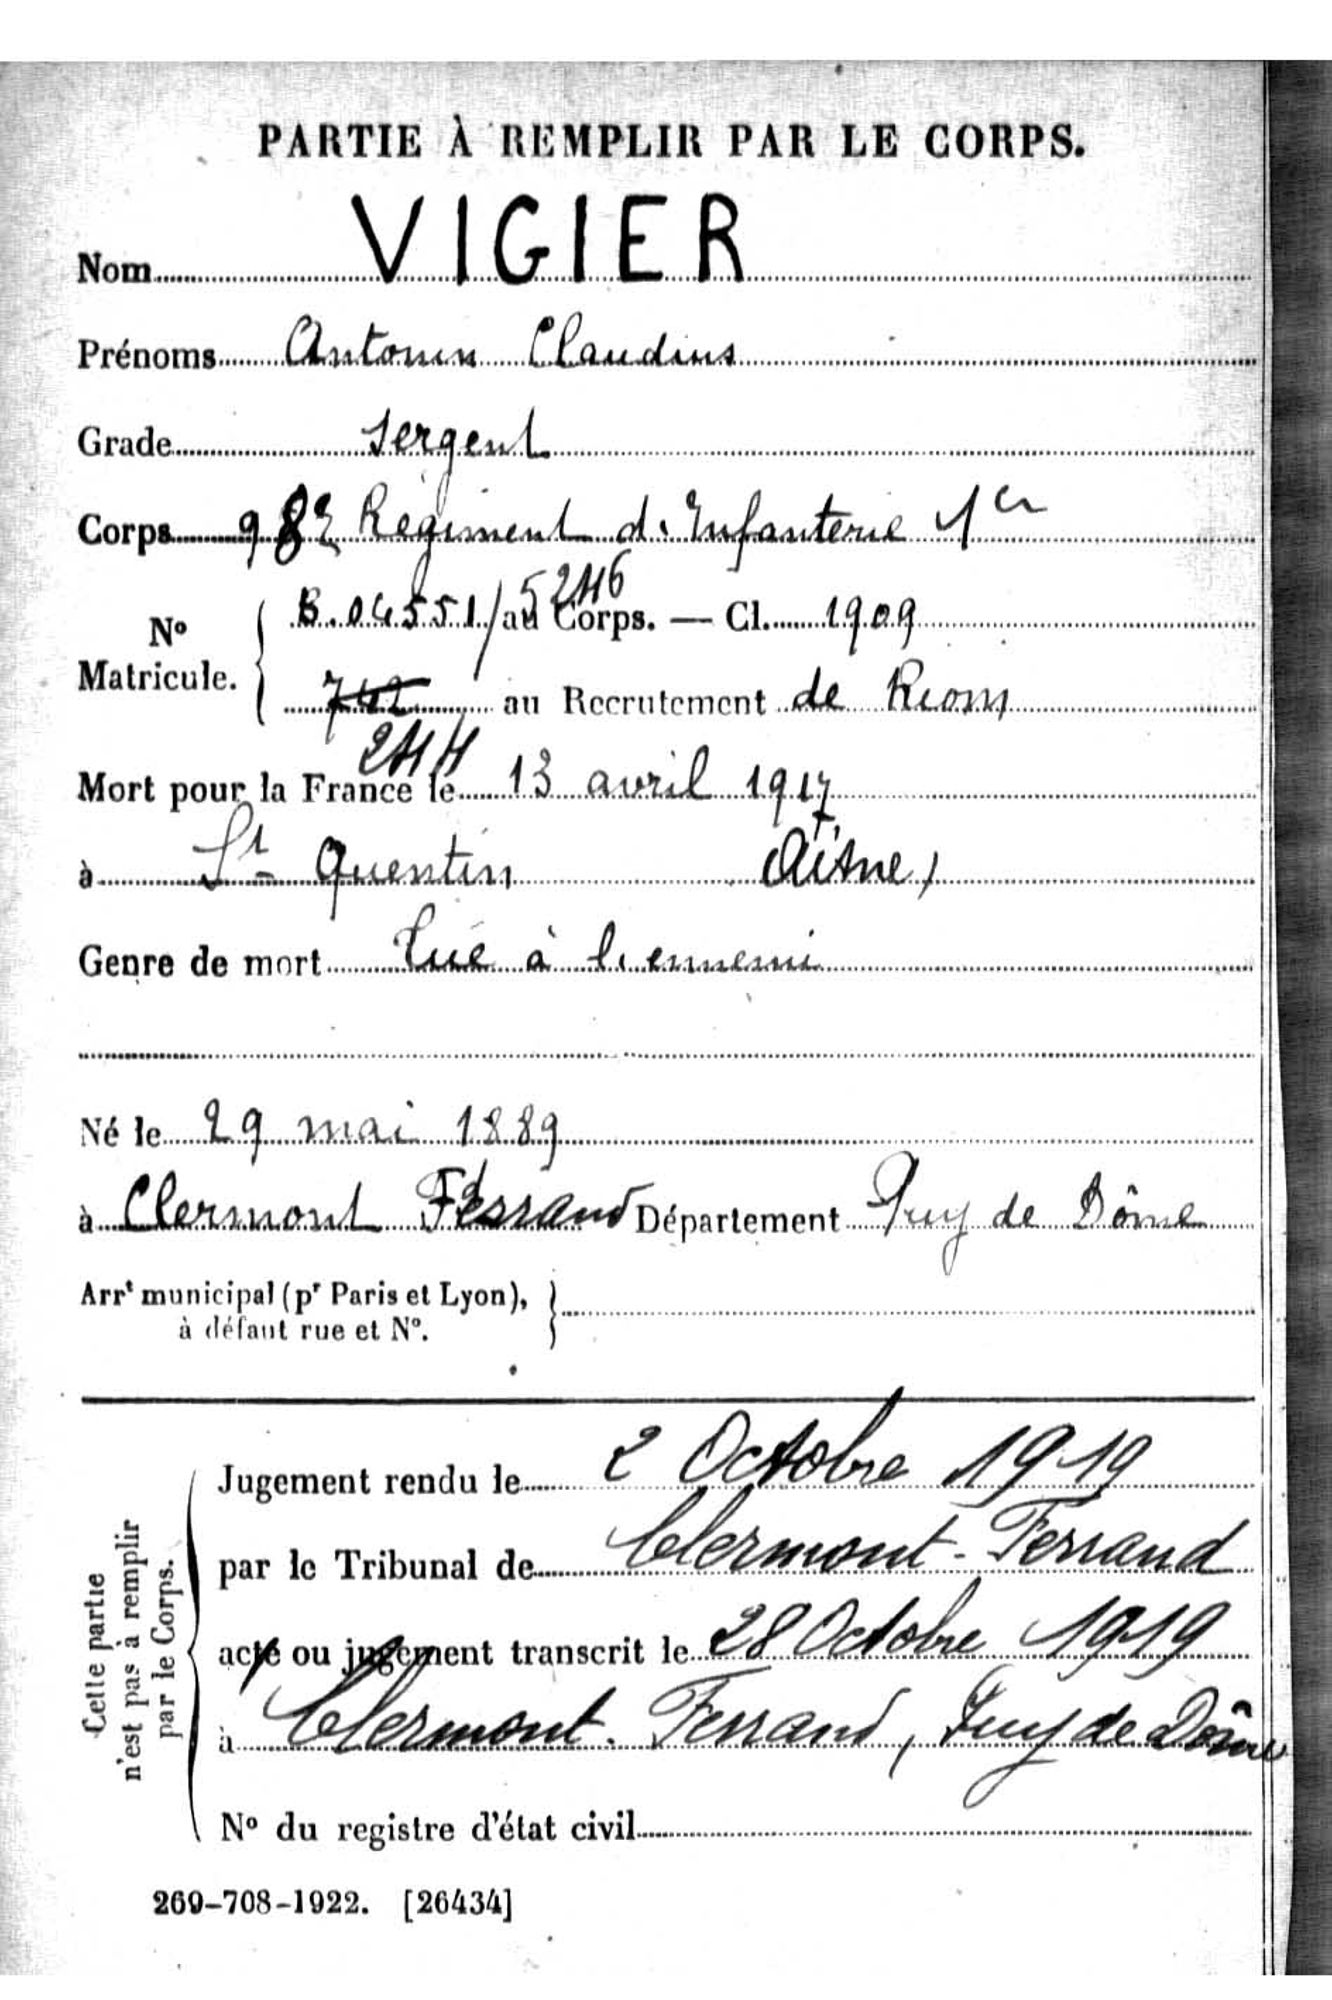 PARTIE À REMPLIR PAR LE CORPS.
Nom VIGIER
Prénoms Antonin Claudius
Grade Sergent
Corps 98e Régiment d'Infanterie 1er
5246
No Matricule. B.04551/ au Corps. — Cl. 1909
742 au Recrutement de Riom
244
Mort pour la France le 13 avril 1917
à St Quentin (Aisne)
Genre de mort Tué à l'ennemi
Né le 29 mai 1889
à Clermont Ferrand Département Puy de Dôme
Arrt municipal (pr Paris et Lyon),
à défaut rue et No.
Cette partie
n'est pas à remplir
par le Corps.
Jugement rendu le 2 Octobre 1919
par le Tribunal de Clermont-Ferrand
acte ou jugement transcrit le 28 Octobre 1919
à Clermont-Ferrand, Puy de Dôme
No du registre d'état civil
269-708-1922. [26434]